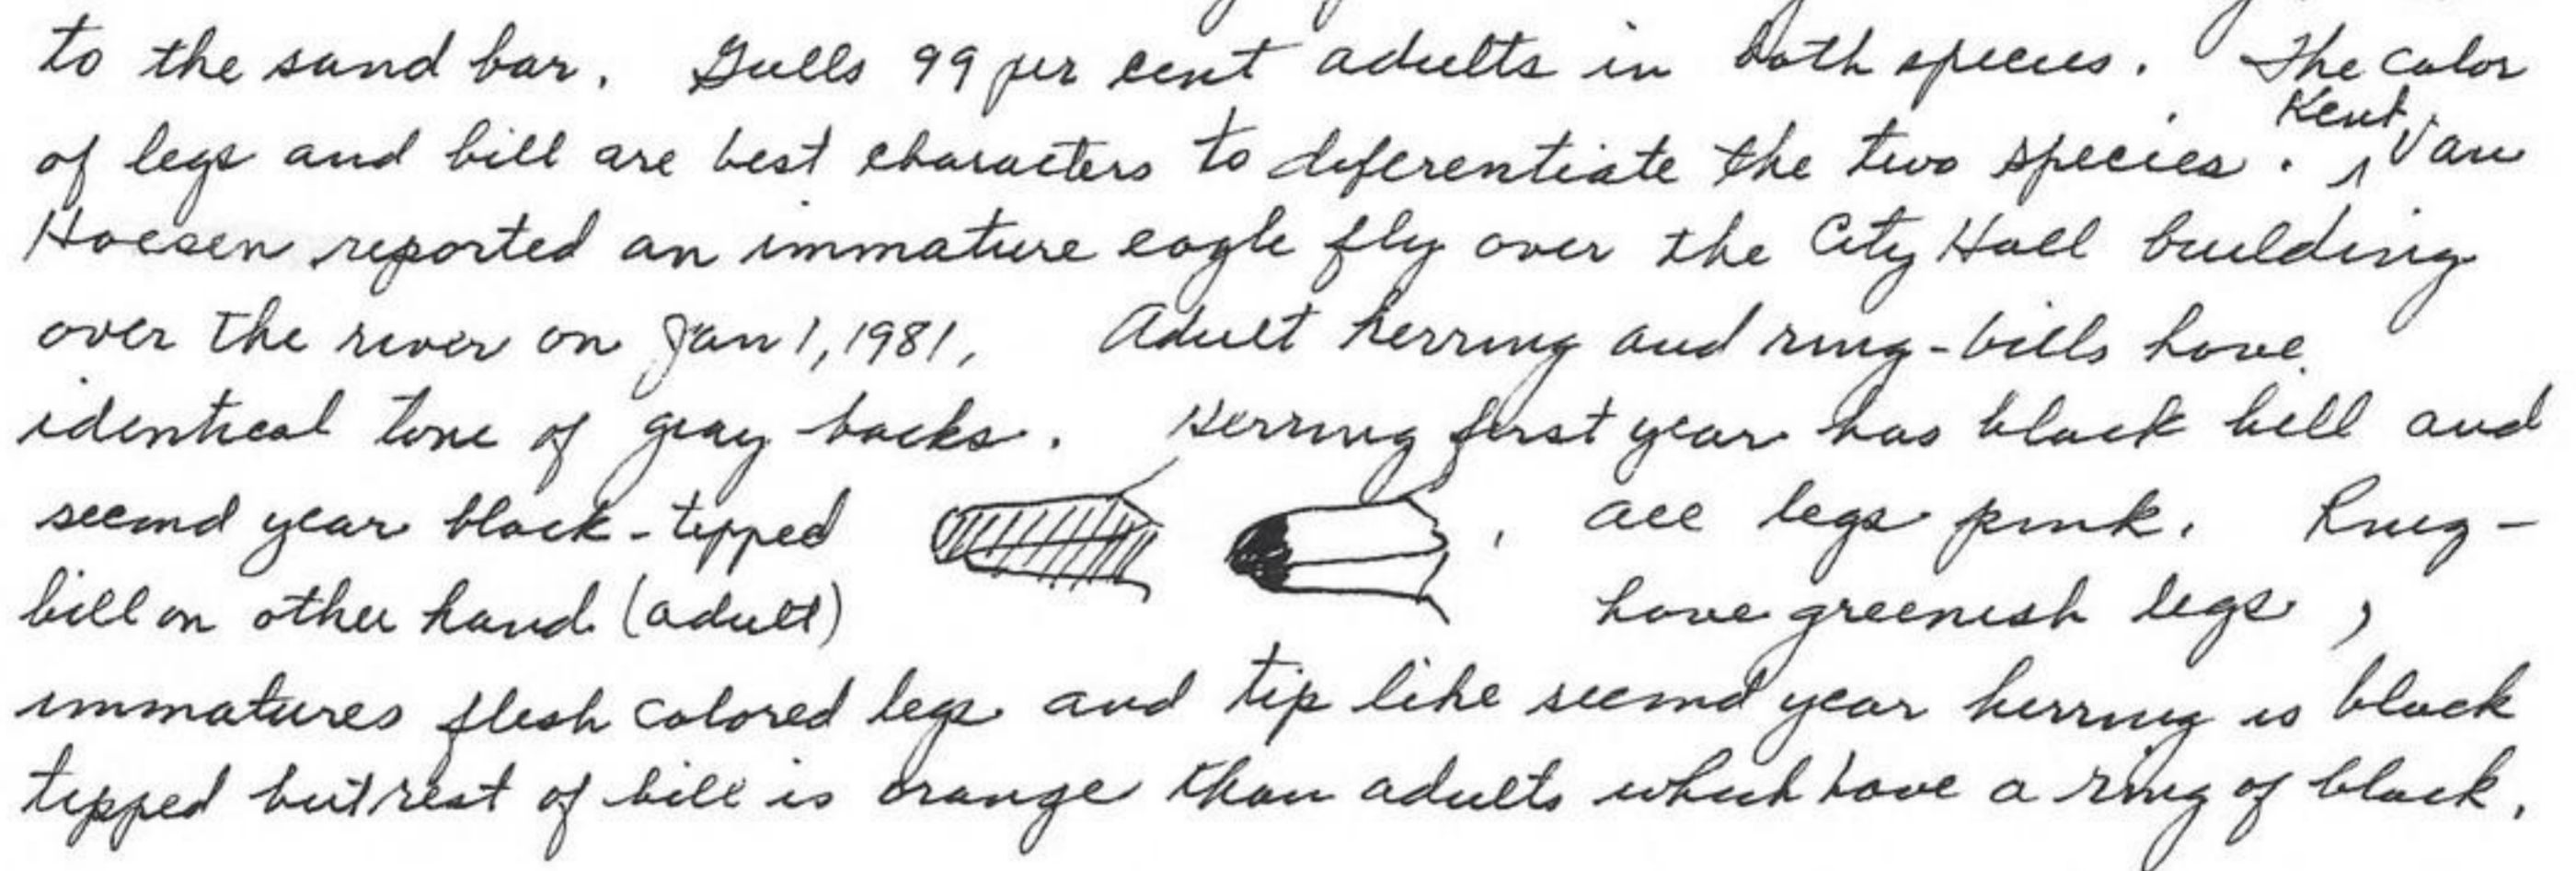 to the sand bar. Gulls 99 per cent adults in both species. The color
of legs and bill are best characters to diferentiate the two species. Kent Van
Hoesen reported an immature eagle fly over the City Hall building
over the river on Jan 1, 1981. Adult herring and ring-bills have
identical tone of gray backs. Herring first year has black bill and
second year black-tipped , all legs pink. Ring-
bill on other hand (adult) have greenish legs,
immatures flesh colored legs and tip like second year herring is black
tipped but rest of bill is orange than adults which have a ring of black.